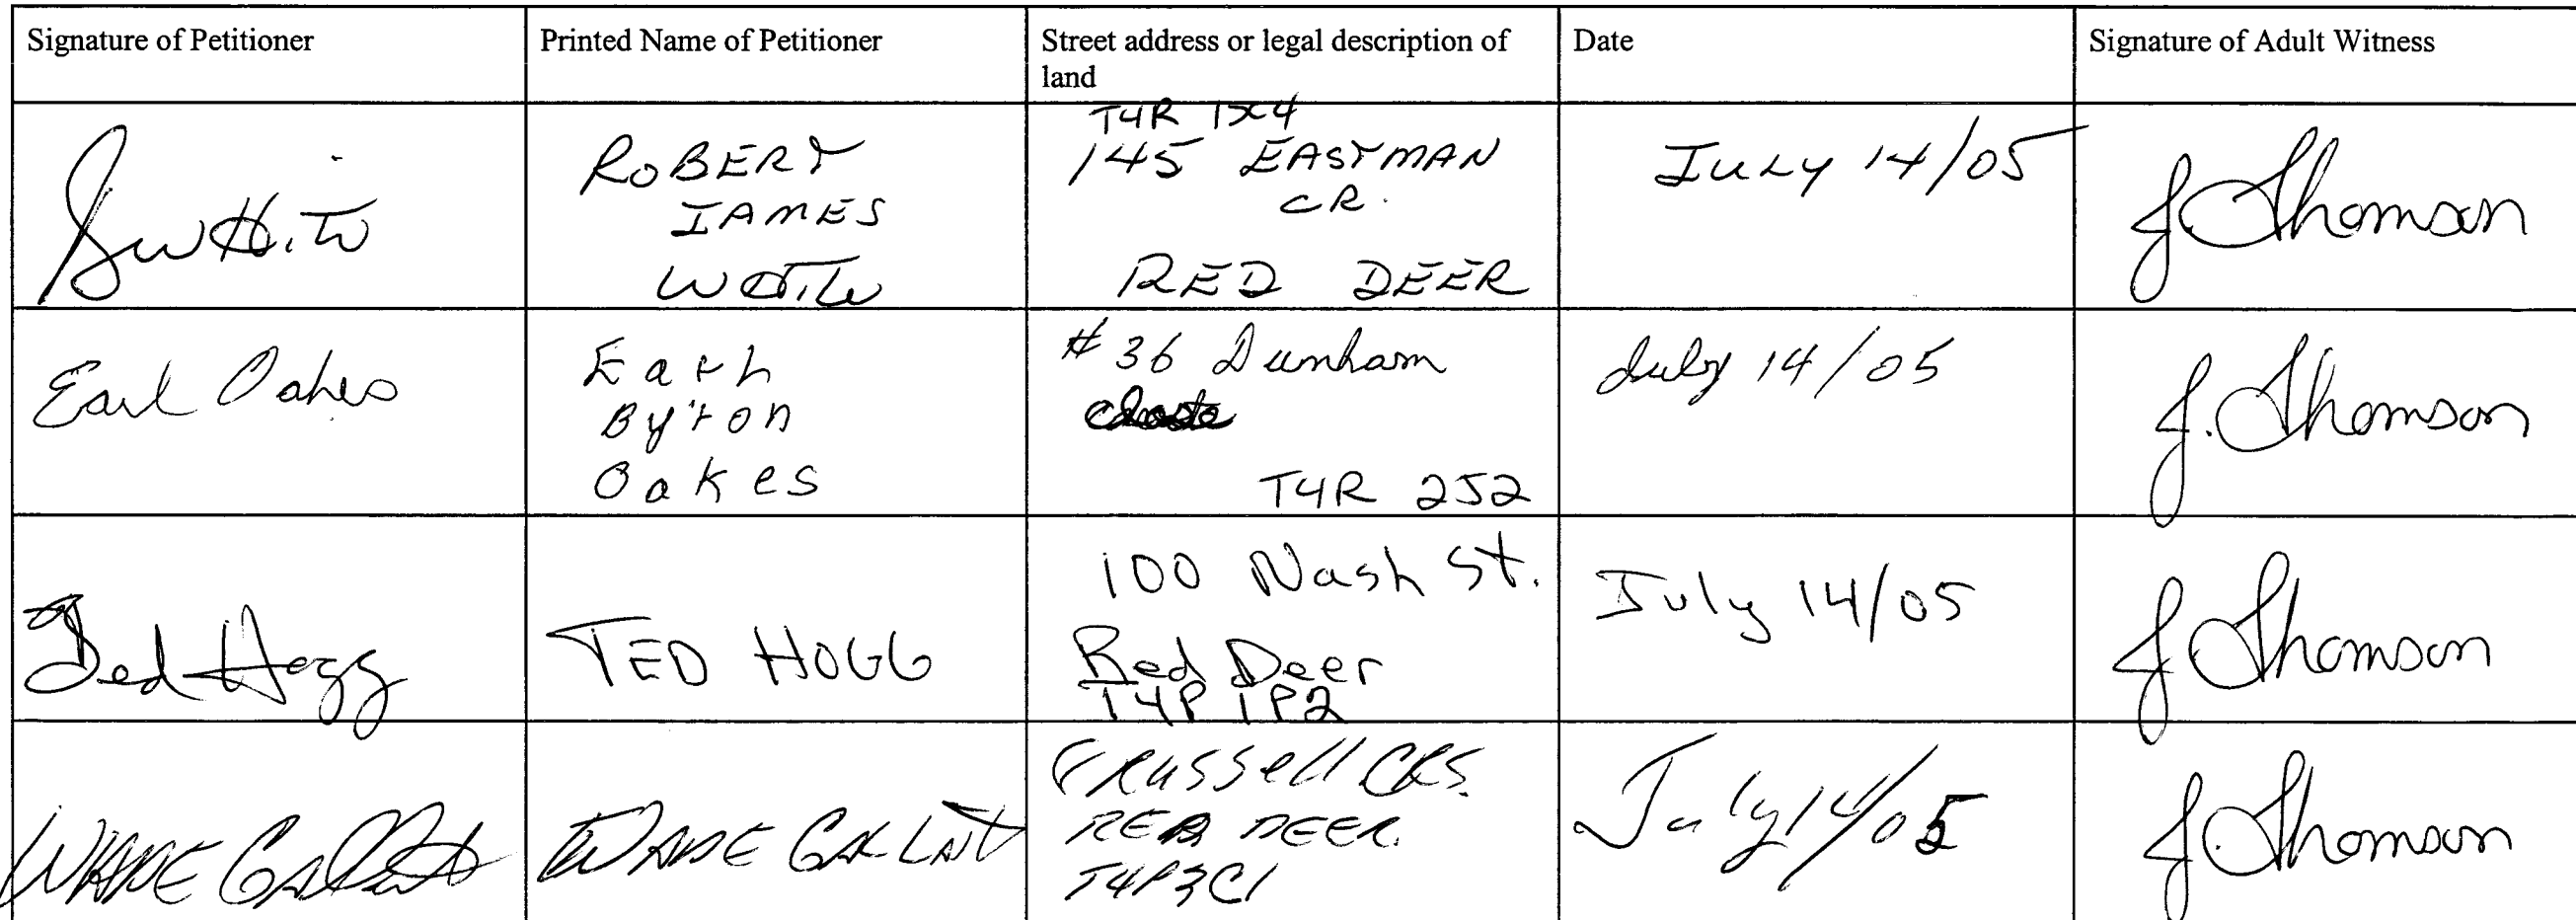 Signature of Petitioner
Printed Name of Petitioner
Street address or legal description of
land
Date
Signature of Adult Witness
ROBERT
JAMES
T4R 1X4
145 EASTMAN
CR.
RED DEER
JULY 14/05
J Thomson
Earl Oakes
Earl
Byron
Oakes
#36 Dunham
T4R 2S2
July 14/05
J. Thomson
Ted Hogg
TED HOGG
100 Nash St.
Red Deer
T4P 1P2
July 14/05
J Thomson
WADE
WADE
Russell CRS.
RED DEER.
T4P3C1
July 14/05
J Thomson